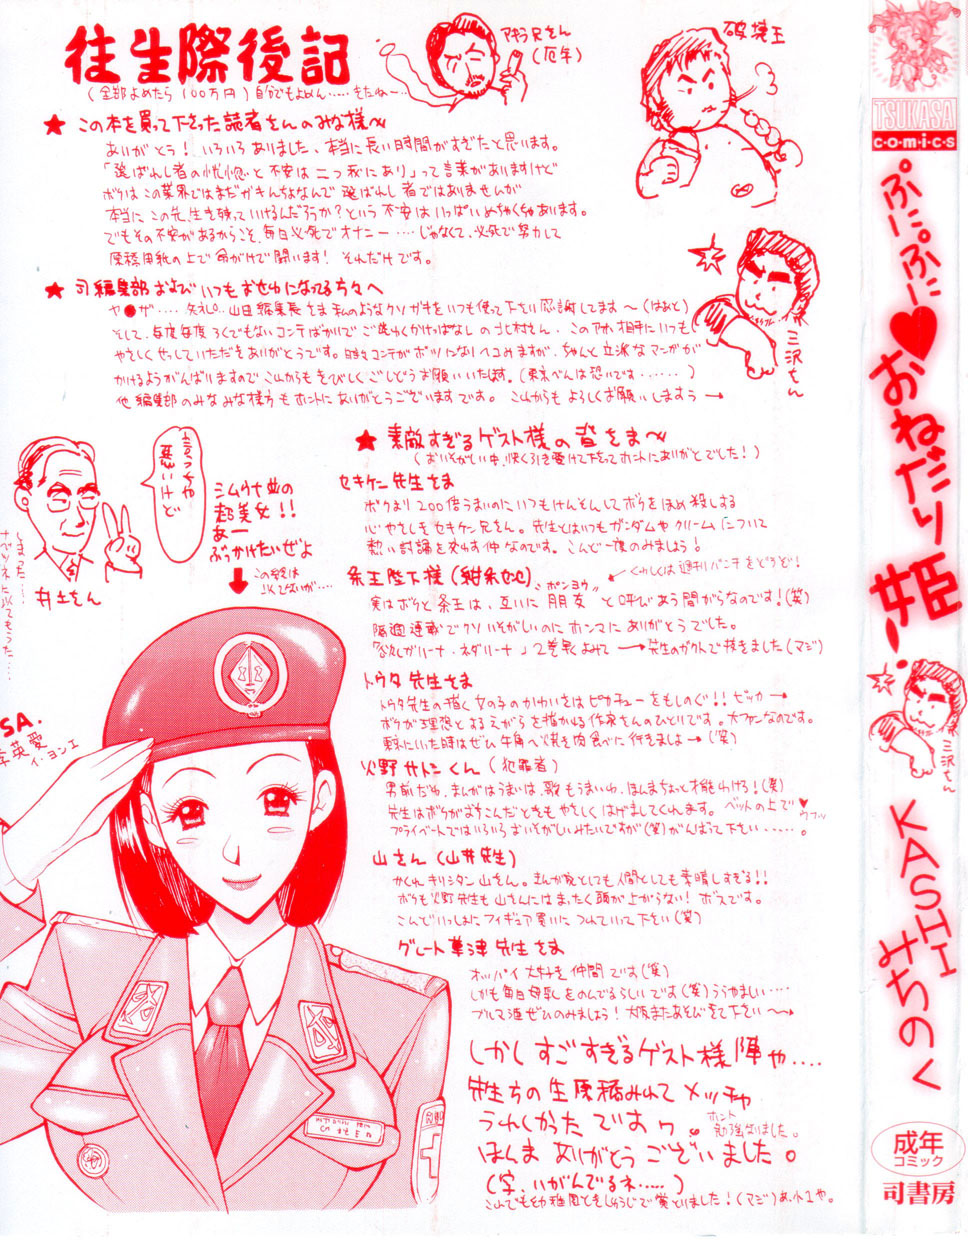 往生際後記
(全部よめたら100万円)自分でもよめん‥‥きたね〜‥
アキラ兄さん
(厄年)
破壊王
★この本を買って下さった読者さんのみな様へ
ありがとう！いろいろありました、本当に長い時間がすぎたと思います。
「選ばれし者の恍惚と不安は二つ我にあり」って言葉がありますけど
ボクはこの業界ではまだガキんちょなんで選ばれし者ではありませんが
本当にこの先、生き残っていけるんだろうか？という不安はいっぱいめちゃくちゃあります。
でもその不安があるからこそ、毎日必死でオナニー‥‥じゃなくて、必死で努力して
原稿用紙の上で命がけで闘います！それだけです。
三沢さん
★司編集部およびいつもお世わになってる方々へ
ヤ●ザ‥‥失礼。山田編集長さま、私のようなクソガキをいつも使って下さい感謝してます〜(はぁと)
そして、毎度毎度ろくでもないコンテばかりでご迷わくかけっぱなしの北村さん、このアホ相手にいつも
やさしくせっしていただきありがとうです。時々コンテがボツになりヘコみますが、ちゃんと立派なマンガが
かけるようがんばりますのでこれからもきびしくごしどうお願いいたします。(東京べんは恐いです‥‥‥)
他編集部のみなみな様方もホントにありがとうございますです。これからもよろしくお願いしますぅ→
言っちゃ
悪いけど
井上さん
シムウナ並の
超美女！！
あー
ぶっかけたいぜよ
この絵は
JKでないが‥‥
SA.
李英愛
イ・ヨンエ
★素敵すぎるゲスト様の皆さま〜
(おいそがしい中、快く引き受けて下さってホントにありがとでした！)
セキケン先生さま
ボクより200倍うまいのにいつもけんそんしてボクをほめ殺しする
心やさしきセキケン兄さん。先生とはいつもガンダムやクリームについて
熱い討論を交わす仲なのです。こんど一度のみましょう！
条王陛下様(紺条セセ)
くわしくは週刊パンチをどうぞ！
ポンヨウ
実はボクと条王は、互いに朋友と呼びあう間がらなのです！(笑)
隔週連載でクソいそがしいのにホンマにありがとうでした。
「欲しがリーナ・ネダリーナ」2巻早くよみて→先生のガクトで抜きました(マジ)
トウタ先生さま
トウタ先生の描く女の子のかわいさはピカチューをもしのぐ！！ピッカ→
ボクが理想とするえがらを描かれる作家さんのひとりです。大ファンなのです。
東京にいた時はぜひ牛角へ焼き肉食べに行きましょ→(笑)
火野サトシくん(犯罪者)
男前だわ、まんがはうまいは、歌もうまいわ、ほんまちょっと才能わけろ！(笑)
先生はボクがおちこんだときもやさしくはげましてくれます。ベットの上で♥ウフッ
プライベートではいろいろおいそがしいみたいですが(笑)がんばって下さい‥‥‥。
山さん(山井先生)
かくれキリシタン山さん。まんが家としても人間としても素晴しすぎる！！
ボクも火野先生も山さんにはまったく頭が上がらない！ボスです。
こんどいっしょにフィギュア買いにつれていって下さい(笑)
グレート草津先生さま
オッパイ大好き仲間です(笑)
しかも毎日母乳をのんでるらしいです(笑)うらやましい‥‥
ブルマ酒ぜひのみましょう！大阪またあそびきて下さい〜→
しかしすごすぎるゲスト様陣や‥‥
先生ちの生原稿みれてメッチャ
うれしかったですゥ。
ホント
勉強なりました。
ほんまありがとうございました。
(字、いがんでるネ‥‥‥)
これでも幼稚園ときしゅうじで賞とりました！(マジ)あ、小1や。
TSUKASA
c・o・m・i・c・s
ぷにぷに♥おねだり姫!
三沢さん
KASHIみちのく
成年
コミック
司書房